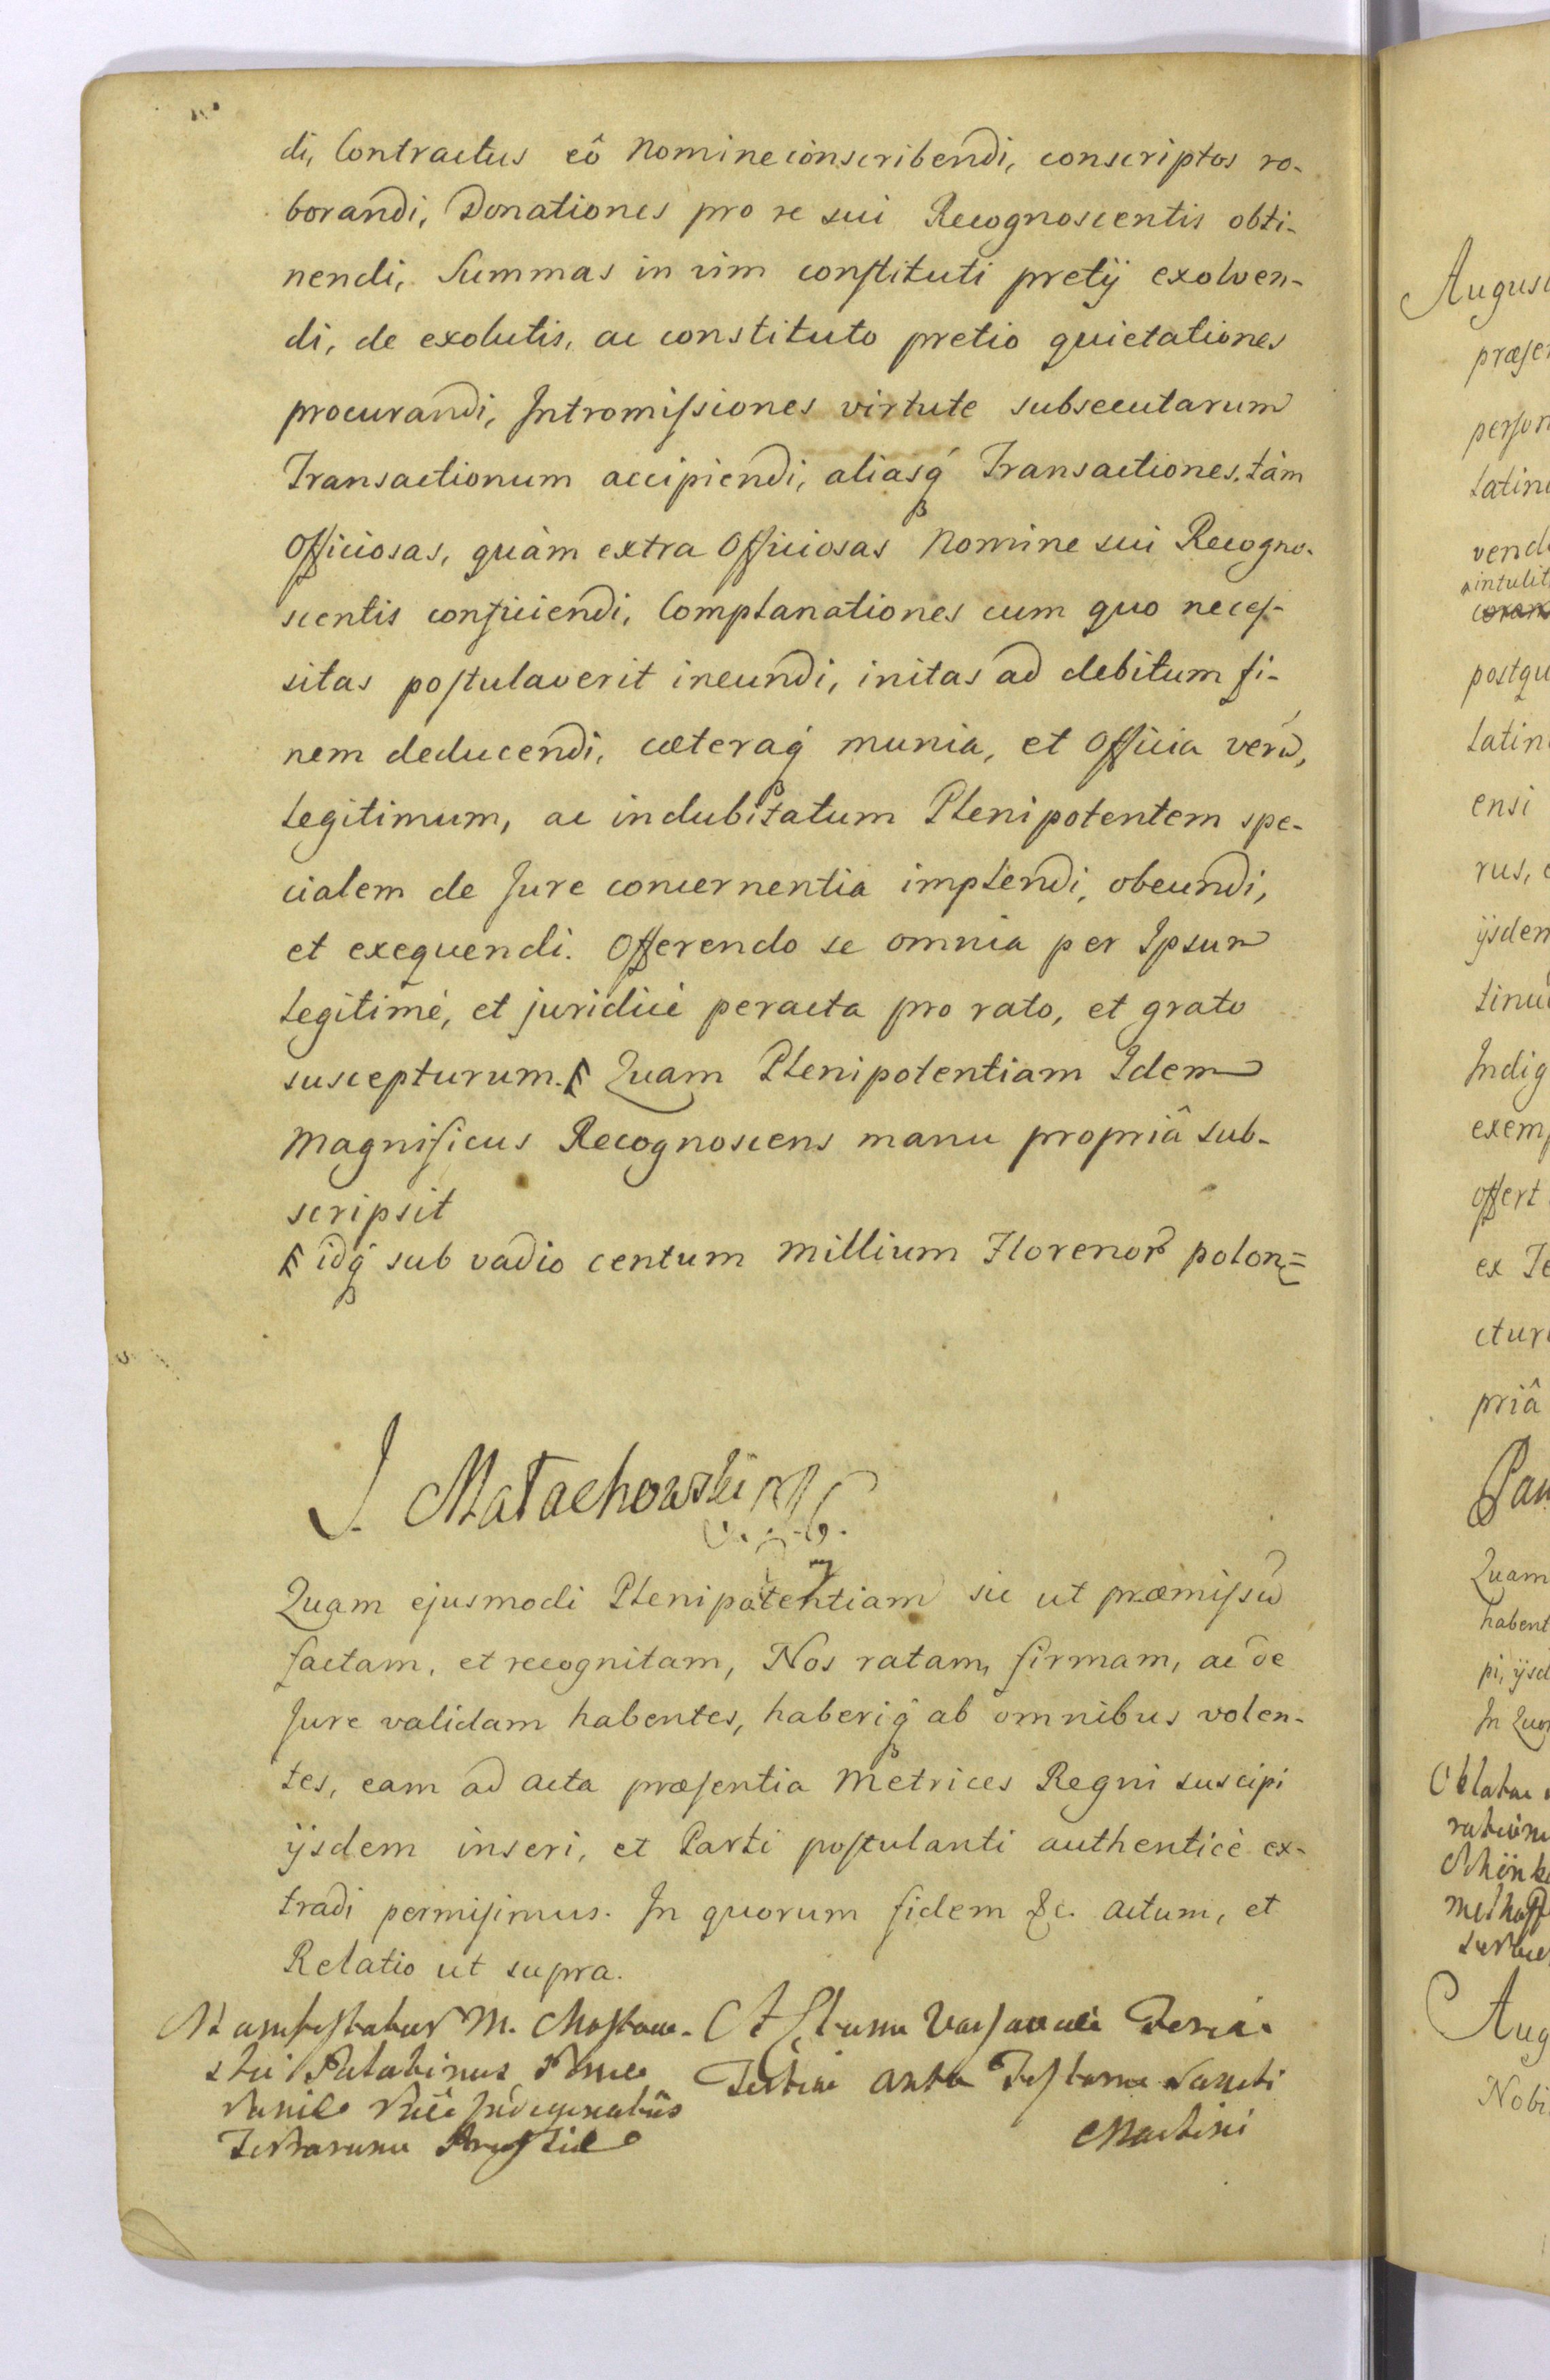 di, Contractus eô Nomine conscribendi, conscriptos ro-
borandi, Donationes pro re sui Recognoscentis obti-
nendi, Summas in vim constituti pretij exolven-
di, de exolutis, ac constituto pretio quietationes
procurandi, Intromissiones virtute subsecutarum
Transactionum accipiendi, aliasq́ Transactiones, tàm
Officiosas, quàm extra Officiosas Nomine sui Recogno-
scentis conficiendi, Complanationes cum quo neces-
sitas postulaverit ineundi, initas ad debitum fi-
nem deducendi, cæteraq́ munia, et Officia verū,
legitimum, ac indubitatum Plenipotentem spe-
cialem de Jure concernentia implendi, obeundi,
et exequendi. Offerendo se omnia per Ipsum
legitimè, et juridicè peracta pro rato, et grato
suscepturum. Quam Plenipotentiam Idem
Magnificus Recognoscens manu propriâ sub-
scripsit
idq́ sub vadio centum Millium Florenor polon=
J. Małachowski
Quam ejusmodi Plenipotentiam sic ut præmissū
factam, et recognitam, Nos ratam, firmam, ac de
Jure validam habentes, haberiq́ ab omnibus volen-
tes, eam ad Acta præsentia Metrices Regni suscipi
ijsdem inseri, et Parti postulanti authenticè ex-
tradi permisimus. In quorum fidem &c. Actum, et
Relatio ut supra.
Manifestatur M.
Palatinus
Terrarum
Actum Varsaviæ Feria
Tertia ante Festum Sancti
Martini
Augus
præse
person
latin
vend
intulit
postqu
latin
ensi
rus,
ijsdem
tinu
Indig
exemp
offert
ex Te
ctur
priâ
Pau
Quam
habent
pi, ijsd
In Quor
Oblatae
Aug
Nobi